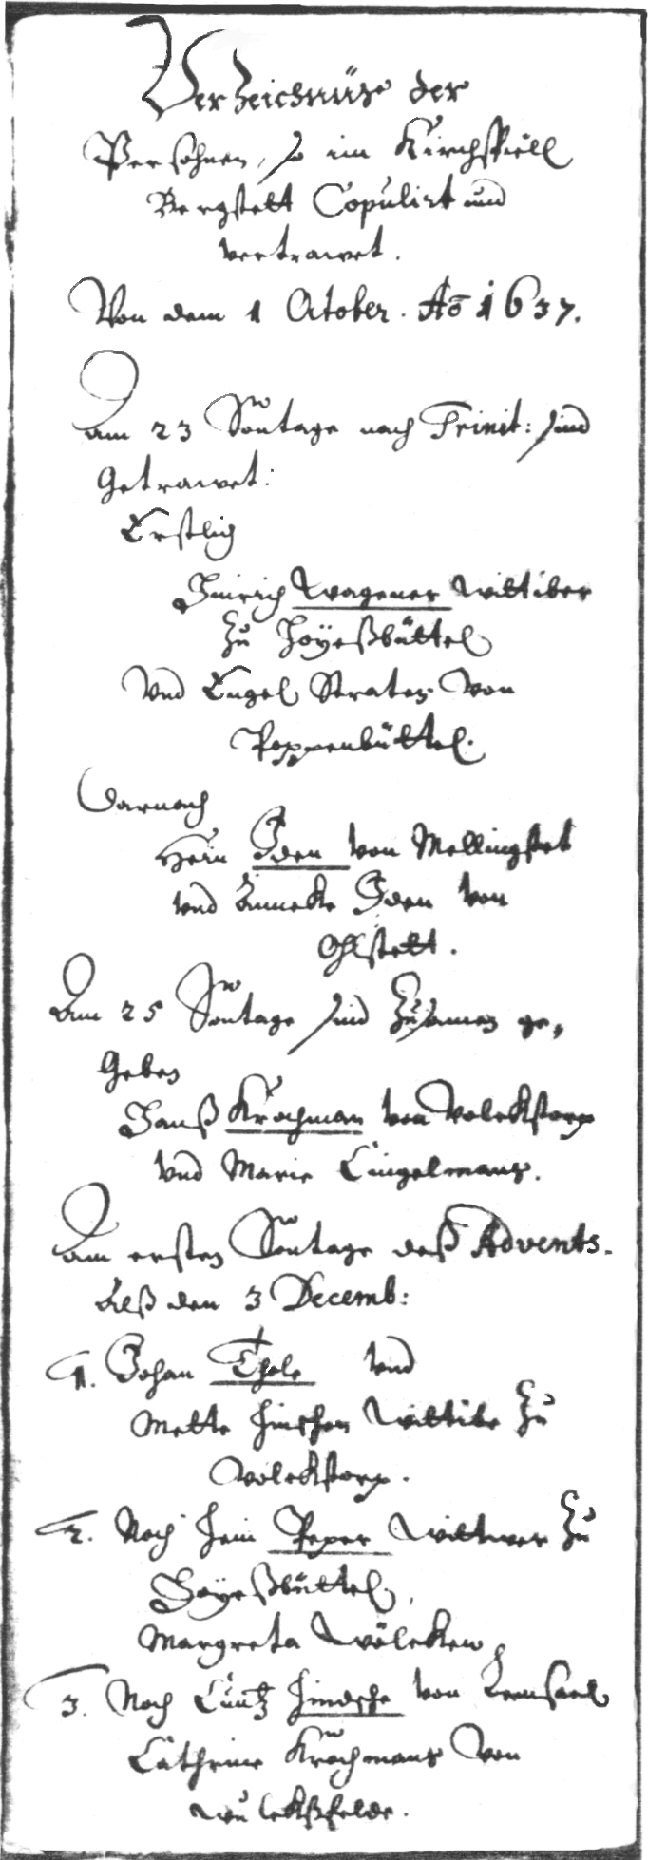 Verzeichnüs der
Persohnen, so im Kirchspiell
Bergstett Copulirt und
vertrawet.
Von dem 1 October. Ao 1637.
Am 23 Sontage nach Trinit: sind
Getrawet:
Erstlig
Hinrich Wagener Wittiber
Zu Hoyeßbüttel
Vnd Engel Straten Von
Poppenbüttel.
Darnach
Hein Iden von Mellingstet
vnd Anneke Iden von
Ohlstett.
Am 25 Sontage sind Zusamen ge,
Geben
Hanß Krochman von Volckstorp
vnd Marie Lingelmans.
Am ersten Sontage deß Advents.
Alß den 3 Decemb:
1. Johan Thole vnd
Mette Hinschen Wittibe Zu
Volckstorp.
2. Noch Hein Peper Wittwer Zu
Hoyeßbüttel,
Margreta Wölcken
3. Noch Lüntz Hinsche von Lemsael
Cathrine Krochmans Von
Wulcksfelde.